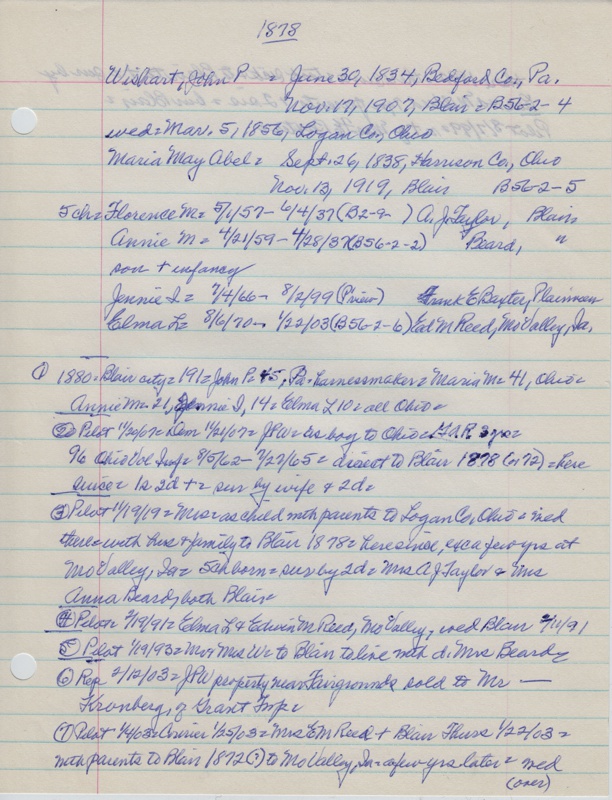 1878
Wishart, John P = June 30, 1834, Bedford Co, Pa.
Nov. 17, 1907, Blair = B56-2-4
wed = Mar. 5, 1856, Logan Co, Ohio
Maria May Abel = Sept. 26, 1838, Harrison Co, Ohio
Nov. 13, 1919, Blair B56-2-5
5 ch = Florence M = 5/1/57 - 6/4/37 (B2-9- ) A. J. Taylor, Blair
Annie M = 4/21/59 - 4/28/37 (B56-2-2) Beard, "
son + infancy
Jennie I = 7/4/66 - 8/2/99 (P'view) Frank E Baxter, Plainview
Elma L = 8/6/70 - 1/22/03 (B56-2-6) Ed M Reed, Mo Valley, Ia.
① 1880 = Blair city = 191 = John P = 45, Pa. harnessmaker = Maria M = 41, Ohio =
Annie M = 21, Jennie I, 14 = Elma L 10 = all Ohio =
② Pilot 11/20/07 = Dem 11/21/07 = JPW = as boy to Ohio = GAR 3 yrs =
96 Ohio Vol Inf = 8/5/62 - 7/27/65 = direct to Blair 1878 (or 72) = here
since = 1s 2d + = sur by wife + 2d =
③ Pilot 11/19/19 = Mrs = as child with parents to Logan Co, Ohio = wed
there = with hus + family to Blair 1878 = here since, exc a few yrs at
Mo Valley, Ia = 5 ch born = sur by 2d = Mrs A J Taylor + Mrs
Anna Beard, both Blair =
④ Pilot 7/19/91 = Elma L + Edwin M Reed, Mo Valley, wed Blair 7/11/91
⑤ Pilot 1/19/93 = Mr + Mrs W = to Blair to live with d. Mrs Beard =
⑥ Rep 2/12/03 = JPW property near Fairgrounds sold to Mr —
Kronberg, of Grant Twp =
⑦ Pilot = Courier 1/25/03 = Mrs E M Reed + Blair Thurs 1/22/03 =
with parents to Blair 1872 (?) to Mo Valley, Ia = a few yrs later = wed
(over)